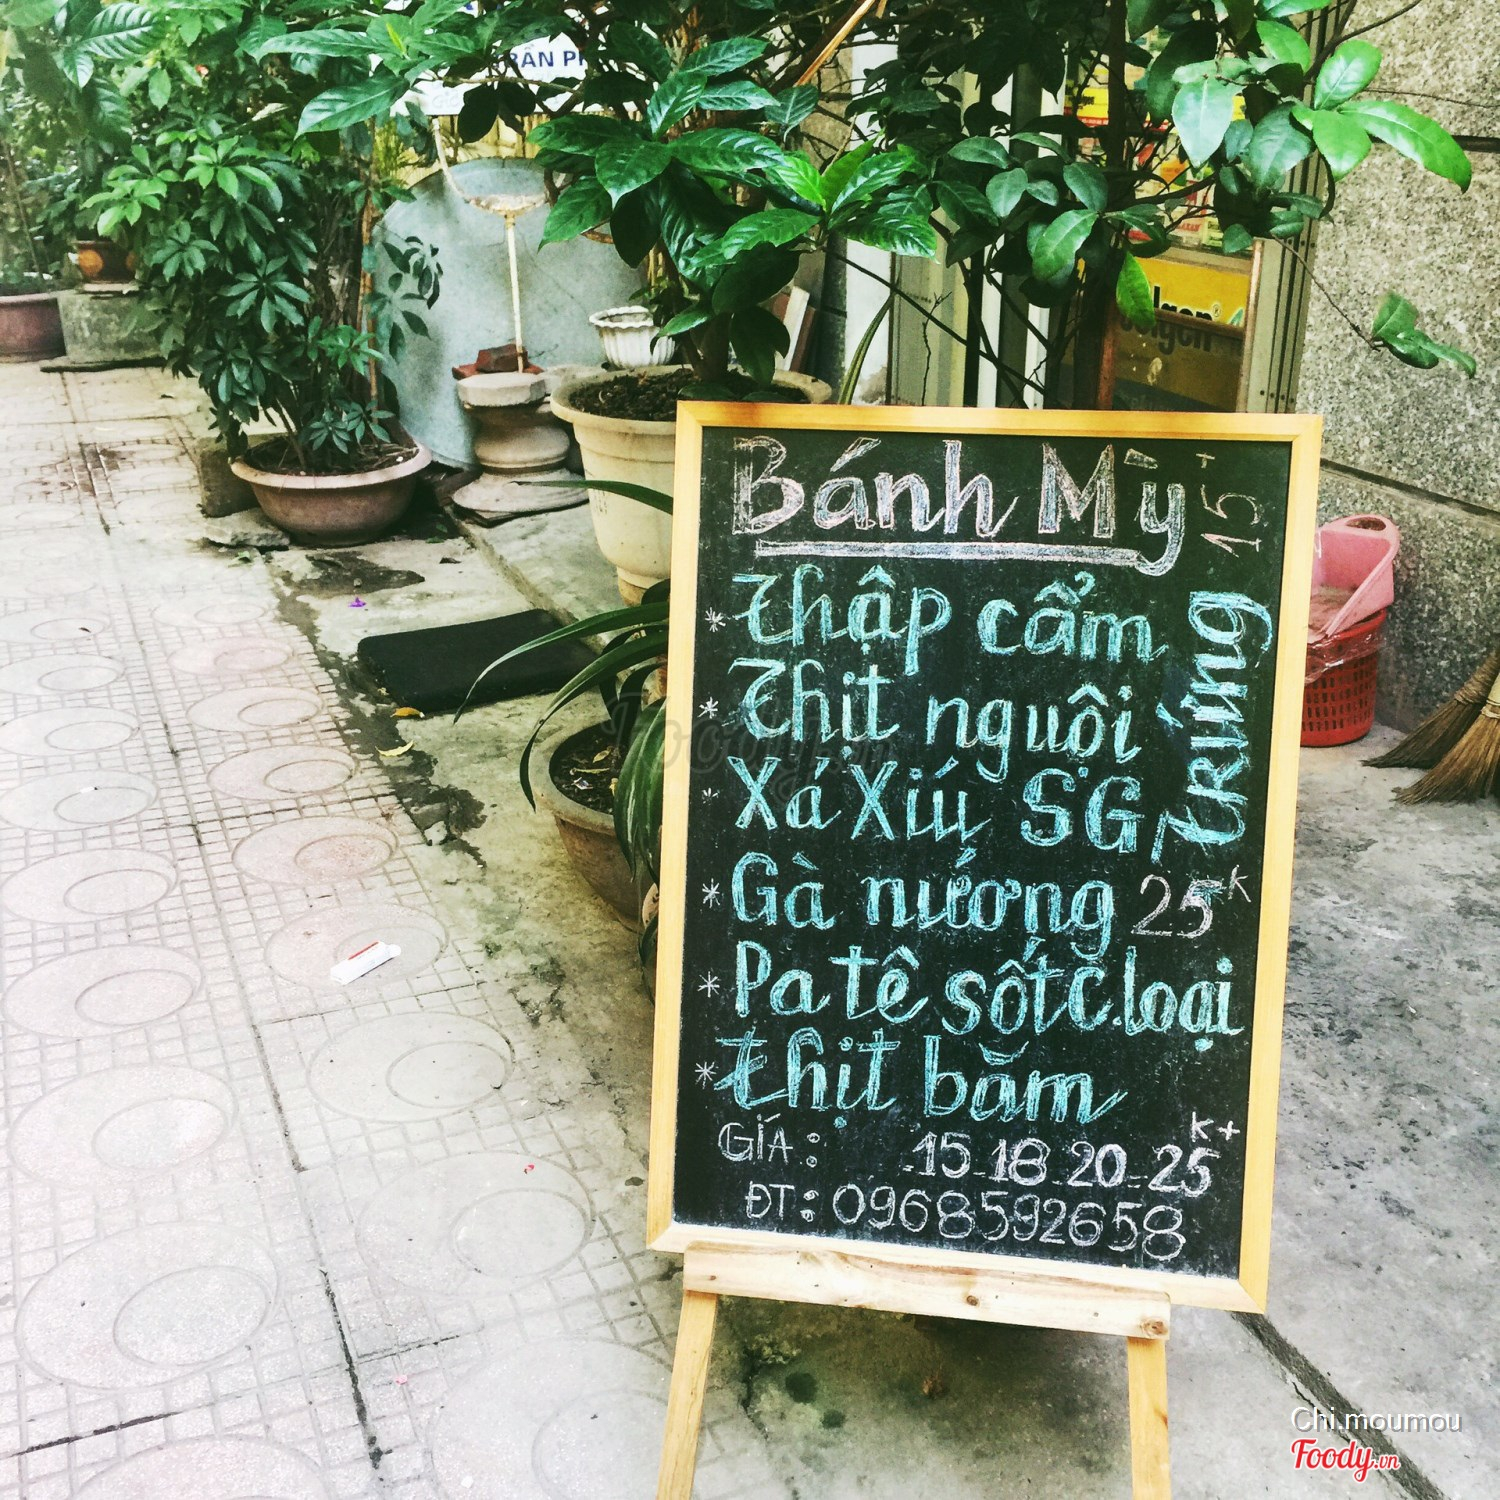 RẦN PH
Bánh Mỳ 15+
* Thập cẩm
* Thịt nguội
* Xá Xíu SG
Trứng
* Gà nướng 25K
* Pa tê sốt c.loại
* Thịt băm
GIÁ: 15-18-20-25K+
ĐT: 0968592658
Foody.vn
Chi.moumou
Foody.vn